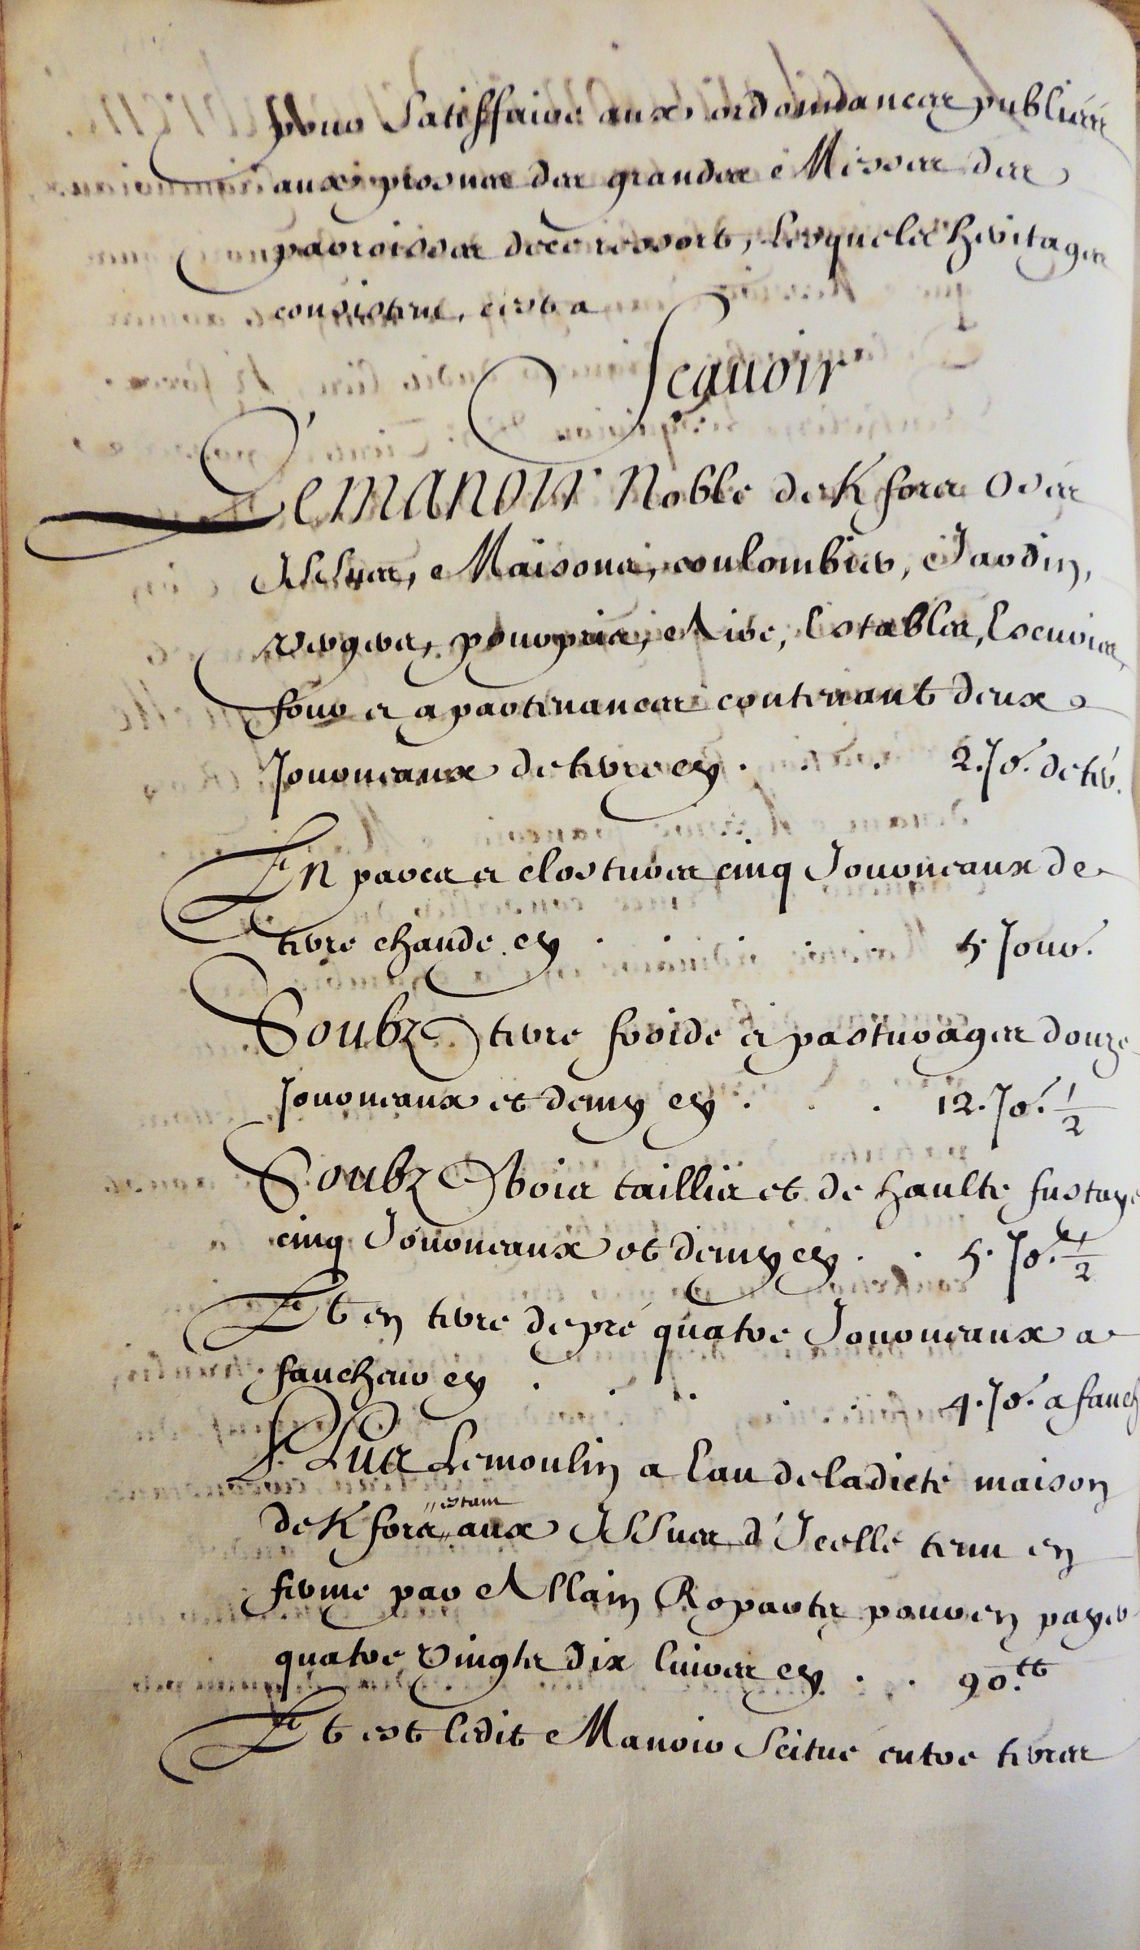 pour Satisffaire aux ordonndances publiées
aux prosnes des grandes Messes des
parroisses de ce ressort, Lesquels heritages
consistent, est a
Scauoir
Le manoir noble de K fors
Issues, Maisons, coulombier, Jardin,
vergers, pourpris, Aire, Estables, Escuries,
four et apartenances contenant deux
Journeaux de terre cy . . . 2. Jo. de ter.
En parcs et clostures cinq Journeaux de
terre chaude cy . . . 5. Jour.
Soubz terre froide et pasturages douze
Journeaux et demy cy . . . 12. Jo. 1/2
Soubz bois taillis et de haulte fustaye
cinq Journeaux et demy cy . . 5. Jo. 1/2
Et en terre de pré quatre Journeaux a
faucher cy . . . . . 4. Jo. a fauch
Plus Le moulin a Eau de ladicte maison
de K fors estant aux Issues d'Icelle tenu en
ferme par Allain Ropartz pour en payer
quatre vingts dix liures cy . . 90.tt
Et est ledit Manoir Scitué entre terres